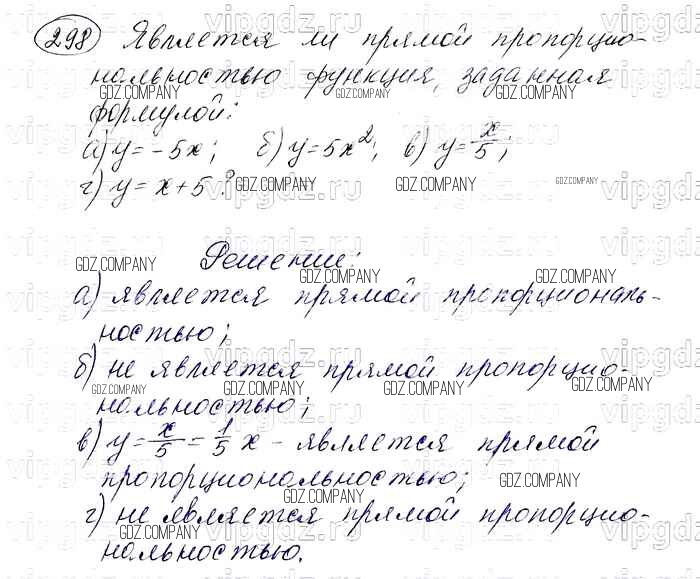 298 Является ли прямой пропорцио-
нальностью функция, заданная
формулой:
а) y = -5x; б) y = 5x²; в) y = x/5;
г) y = x + 5?
Решение:
а) является прямой пропорциональ-
ностью;
б) не является прямой пропорцио-
нальностью;
в) y = x/5 = 1/5 x - является прямой
пропорциональностью;
г) не является прямой пропорцио-
нальностью.
vipgdz.ru
GDZ.COMPANY